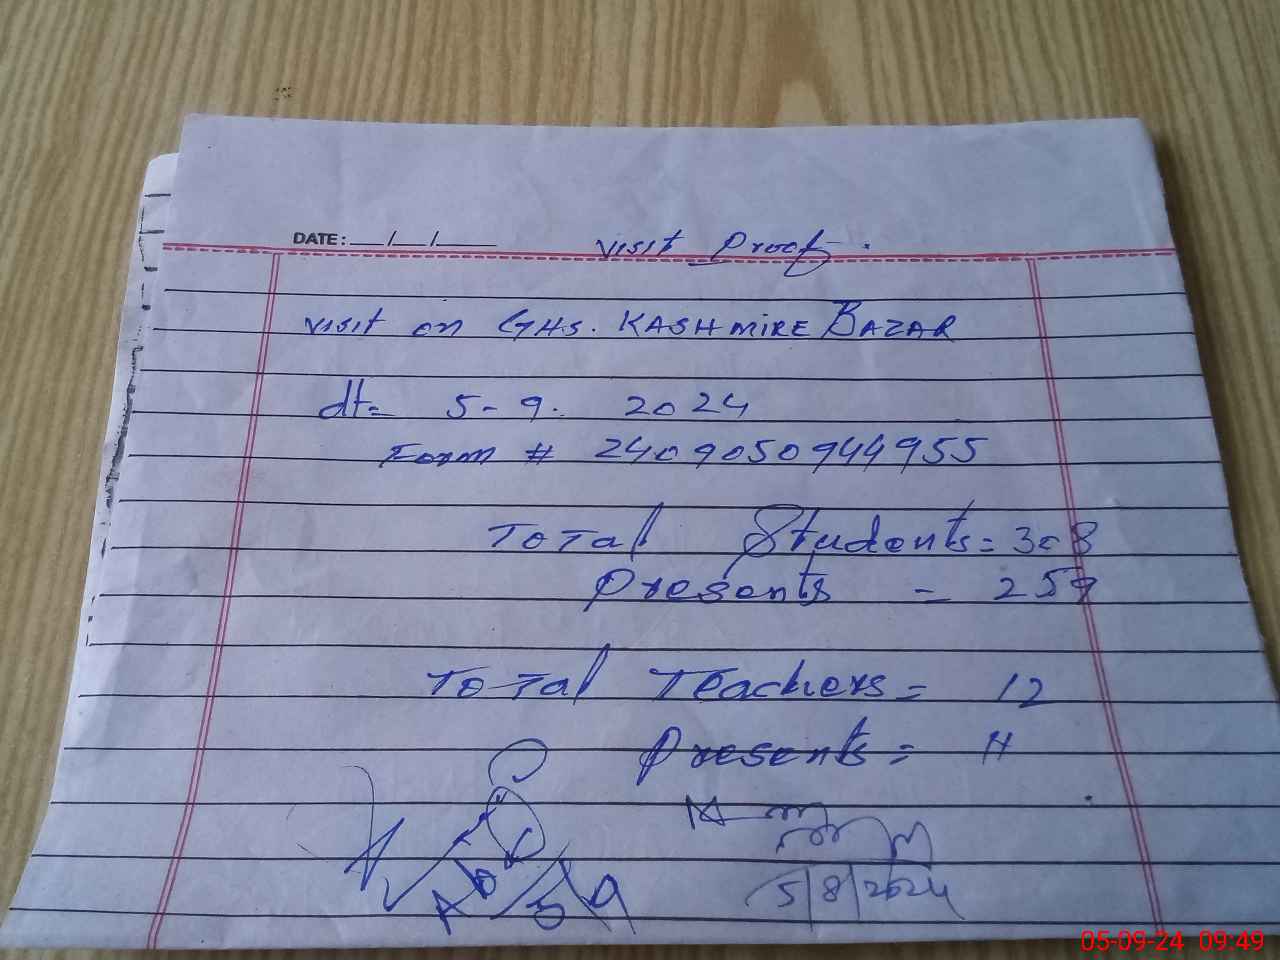 DATE: __/__/____
Visit Proof.
Visit on GHS. KASHMIRE BAZAR
dt= 5-9. 2024
Form # 2409050944955
Total Students = 308
Presents = 259
Total Teachers = 12
Presents = 11
5/9
5/8/2024
05-09-24 09:49